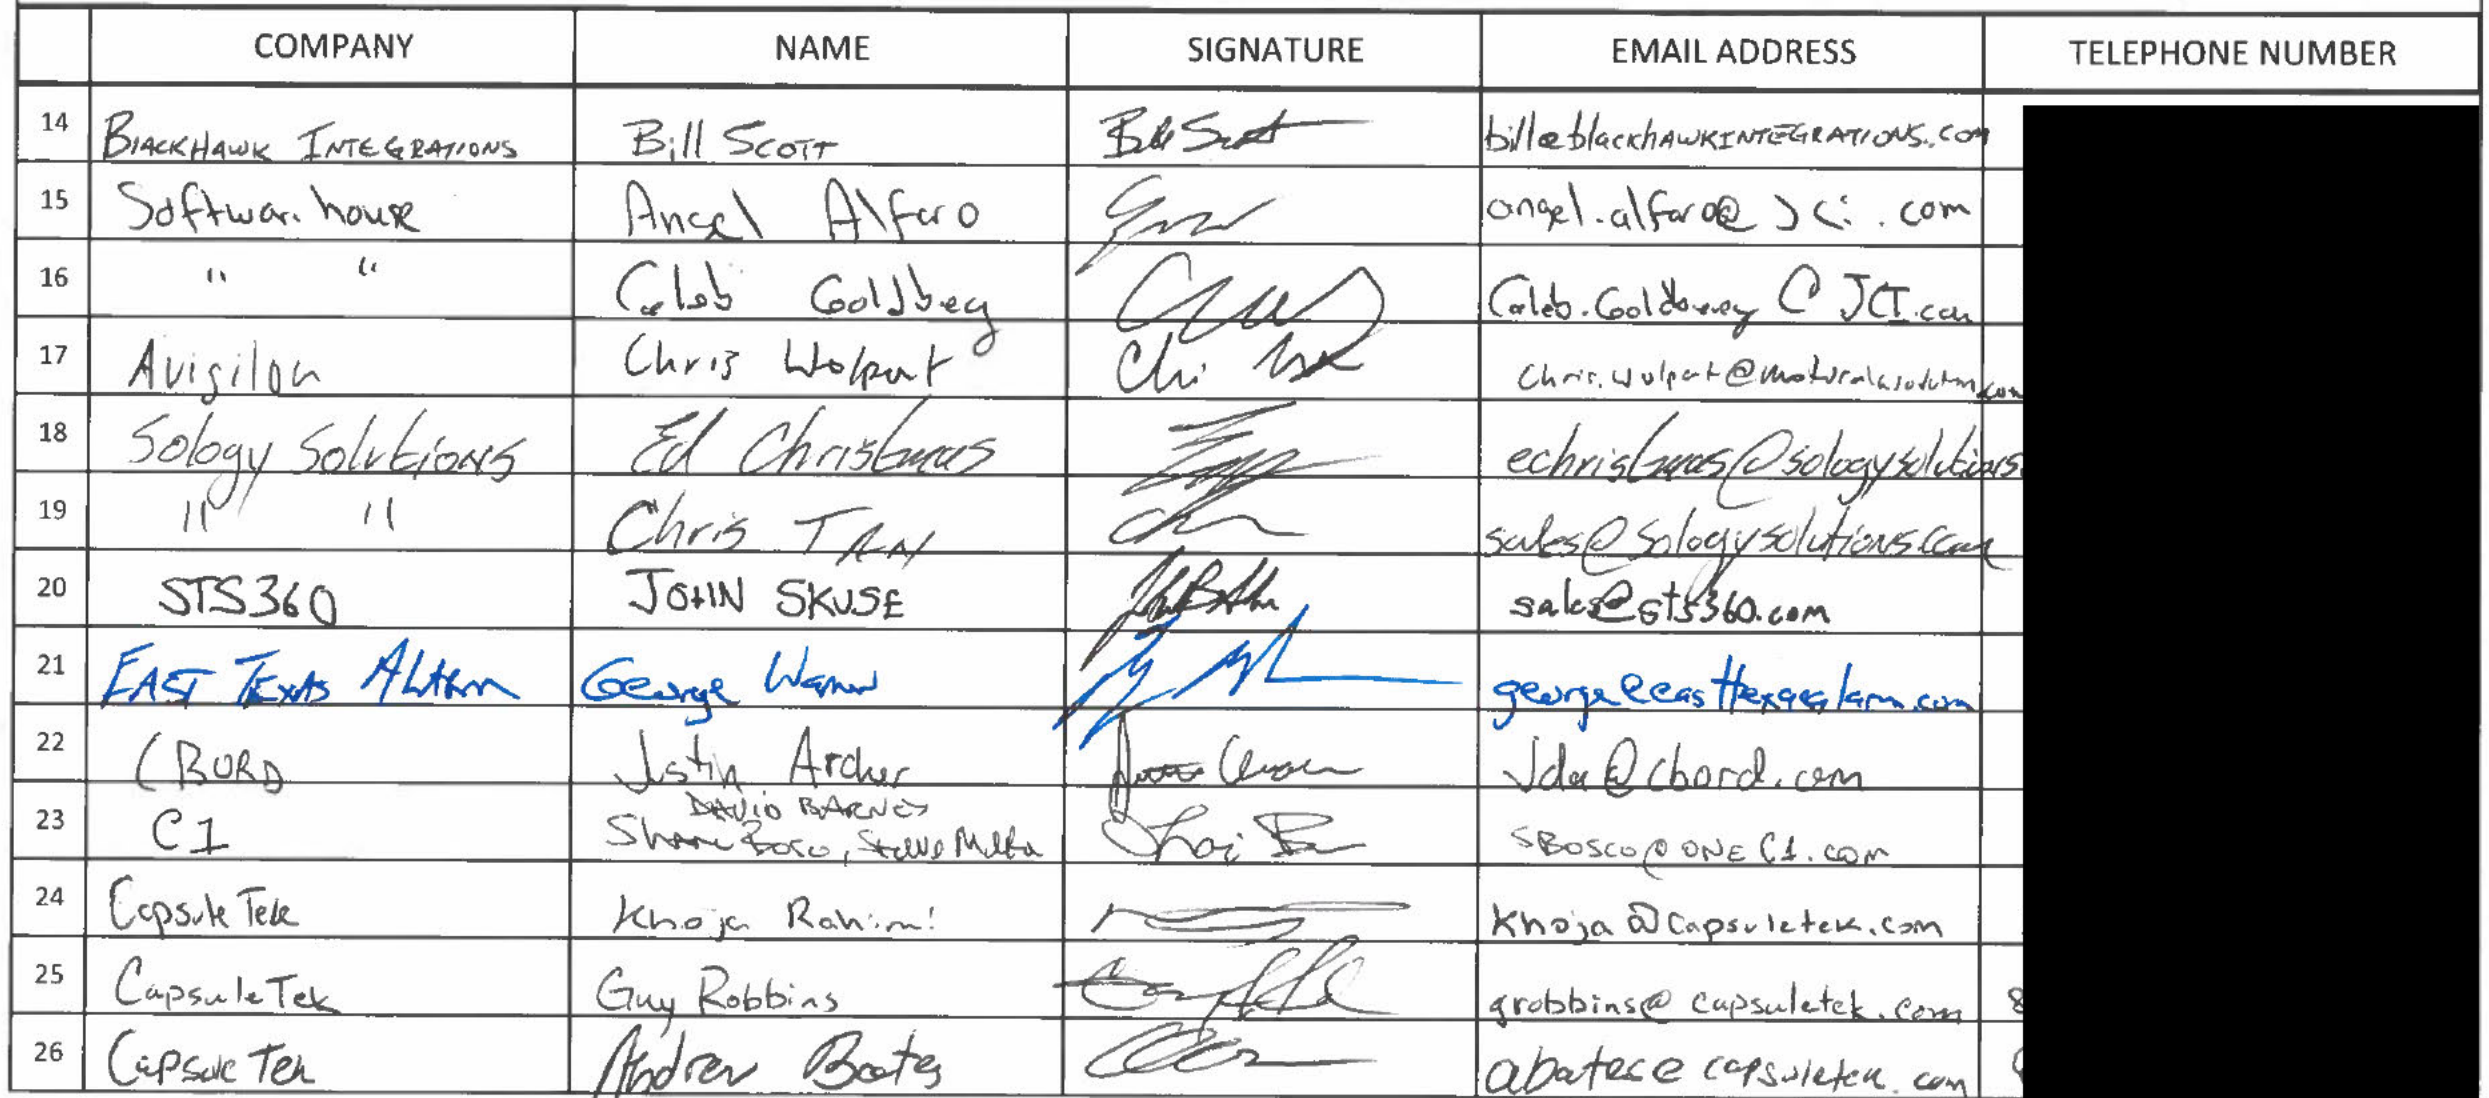 COMPANY NAME SIGNATURE EMAIL ADDRESS TELEPHONE NUMBER
14 BlACKHAWK INTEGRATIONS Bill SCOTT Bill Scott bill@blackhAWKINTEGRATIONS.com
15 Softwar. house Angel Alfaro angel.alfaro@JCi.com
16 " " Caleb Goldbeg Caleb.Goldberg @ JCI.com
17 Avigilon Chris Wolpert Chris.Wolpert@motorolasolutions.com
18 Sology Solutions Ed Christmas echristmas@sologysolutions.
19 " " Chris TRAN sales@sologysolutions.com
20 STS360 JOHN SKUSE sales@sts360.com
21 EAST TEXAS Alarm George george@easttexasalarm.com
22 CBORD Justin Archer Jda@cbord.com
DAVID BARNES
23 C1 Bosco, Steve SBOSCO@ONEC1.com
24 Capsule Tek Khoja Rahimi Khoja@Capsuletek.com
25 CapsuleTek Guy Robbins grobbins@capsuletek.com 8
26 Capsule Tek Andrew Bates abates@capsuletek.com